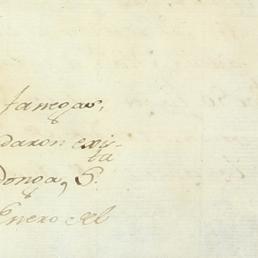 fanegas,
daron exis-
ta
donga, S.
Enero del